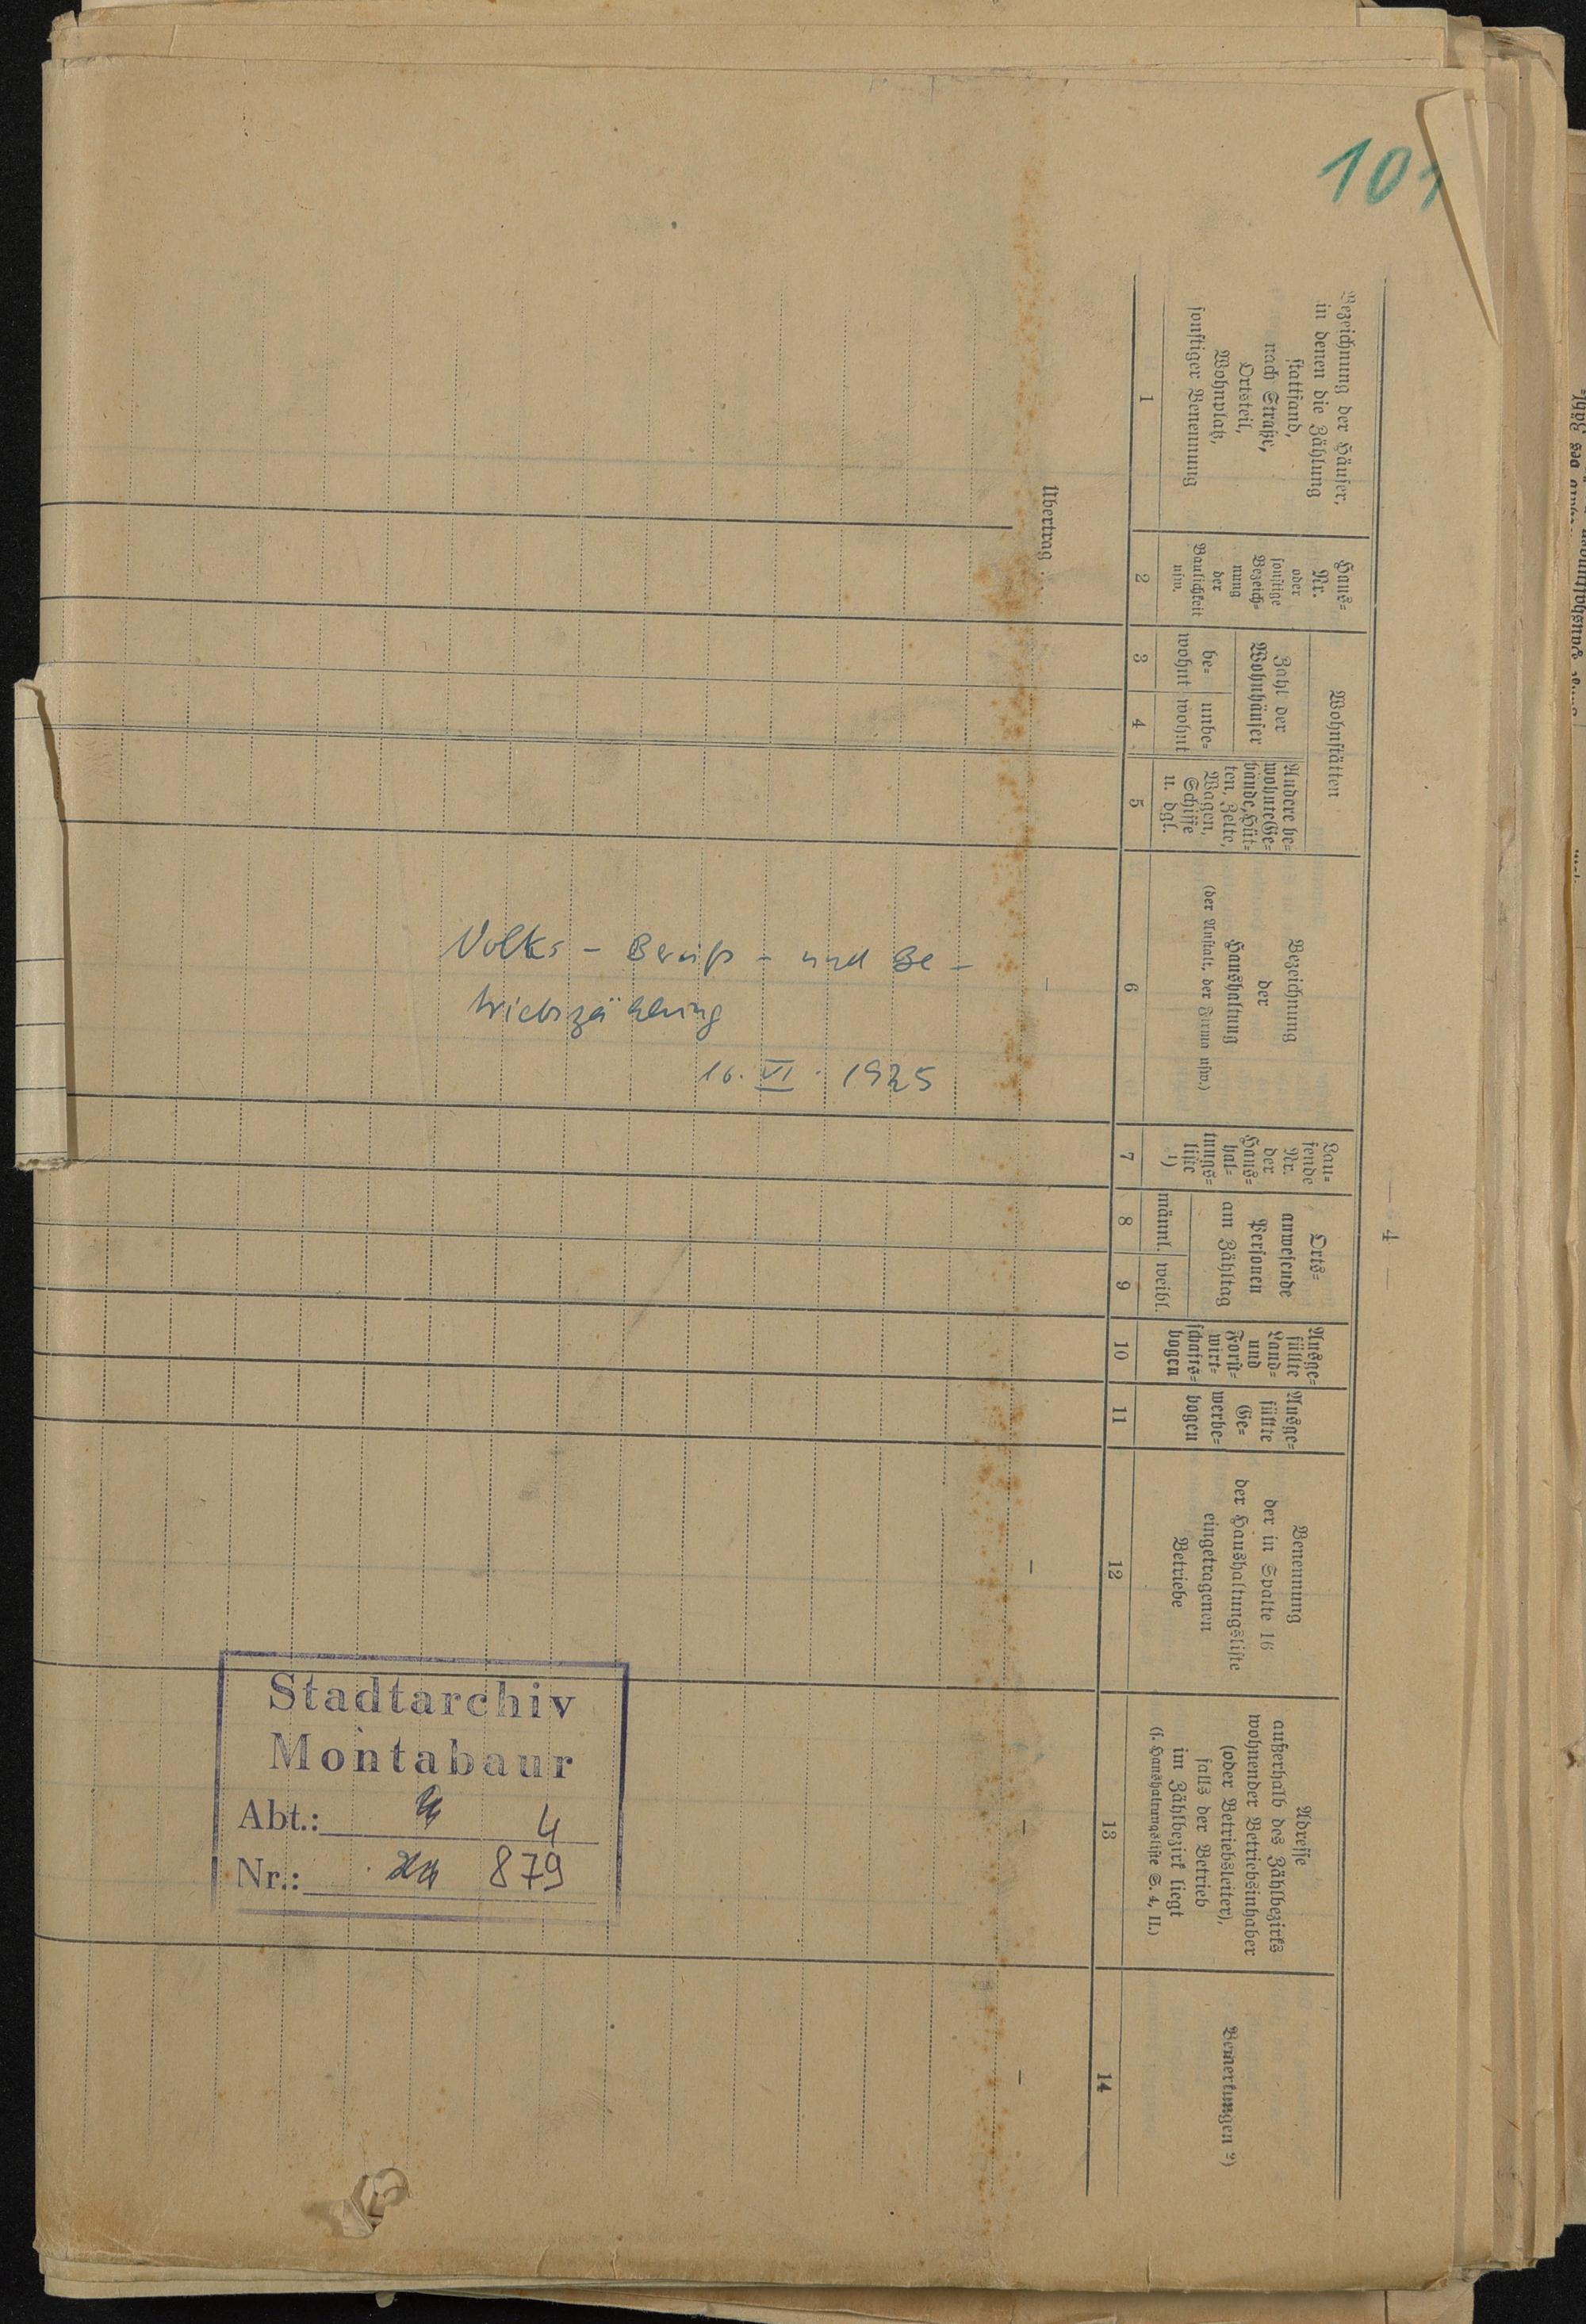 101
— 4 —
Bezeichnung der Häuser,
in denen die Zählung
stattfand,
nach Straße,
Ortsteil,
Wohnplatz,
sonstiger Benennung
Haus-
Nr.
oder
sonstige
Bezeich-
nung
der
Baulichkeit
usw.
Wohnstätten
Zahl der
Wohnhäuser
be-
wohnt
unbe-
wohnt
Andere be-
wohnte Ge-
bäude, Hüt-
ten, Zelte,
Wagen,
Schiffe
u. dgl.
Bezeichnung
der
Haushaltung
(der Anstalt, der Firma usw.)
Lau-
fende
Nr.
der
Haus-
hal-
tungs-
liste
¹)
Orts-
anwesende
Personen
am Zähltag
männl.
weibl.
Ausge-
füllte
Land-
und
Forst-
wirt-
schafts-
bogen
Ausge-
füllte
Ge-
werbe-
bogen
Benennung
der in Spalte 16
der Haushaltungsliste
eingetragenen
Betriebe
Adresse
außerhalb des Zählbezirks
wohnender Betriebsinhaber
(oder Betriebsleiter),
falls der Betrieb
im Zählbezirk liegt
(s. Haushaltungsliste S. 4, II.)
Bemerkungen ²)
1 2 3 4 5 6 7 8 9 10 11 12 13 14
Übertrag .
Volks - Berufs - und Be -
triebszählung
16. VI. 1925
Stadtarchiv
Montabaur
Abt.: 4
Nr.: 879